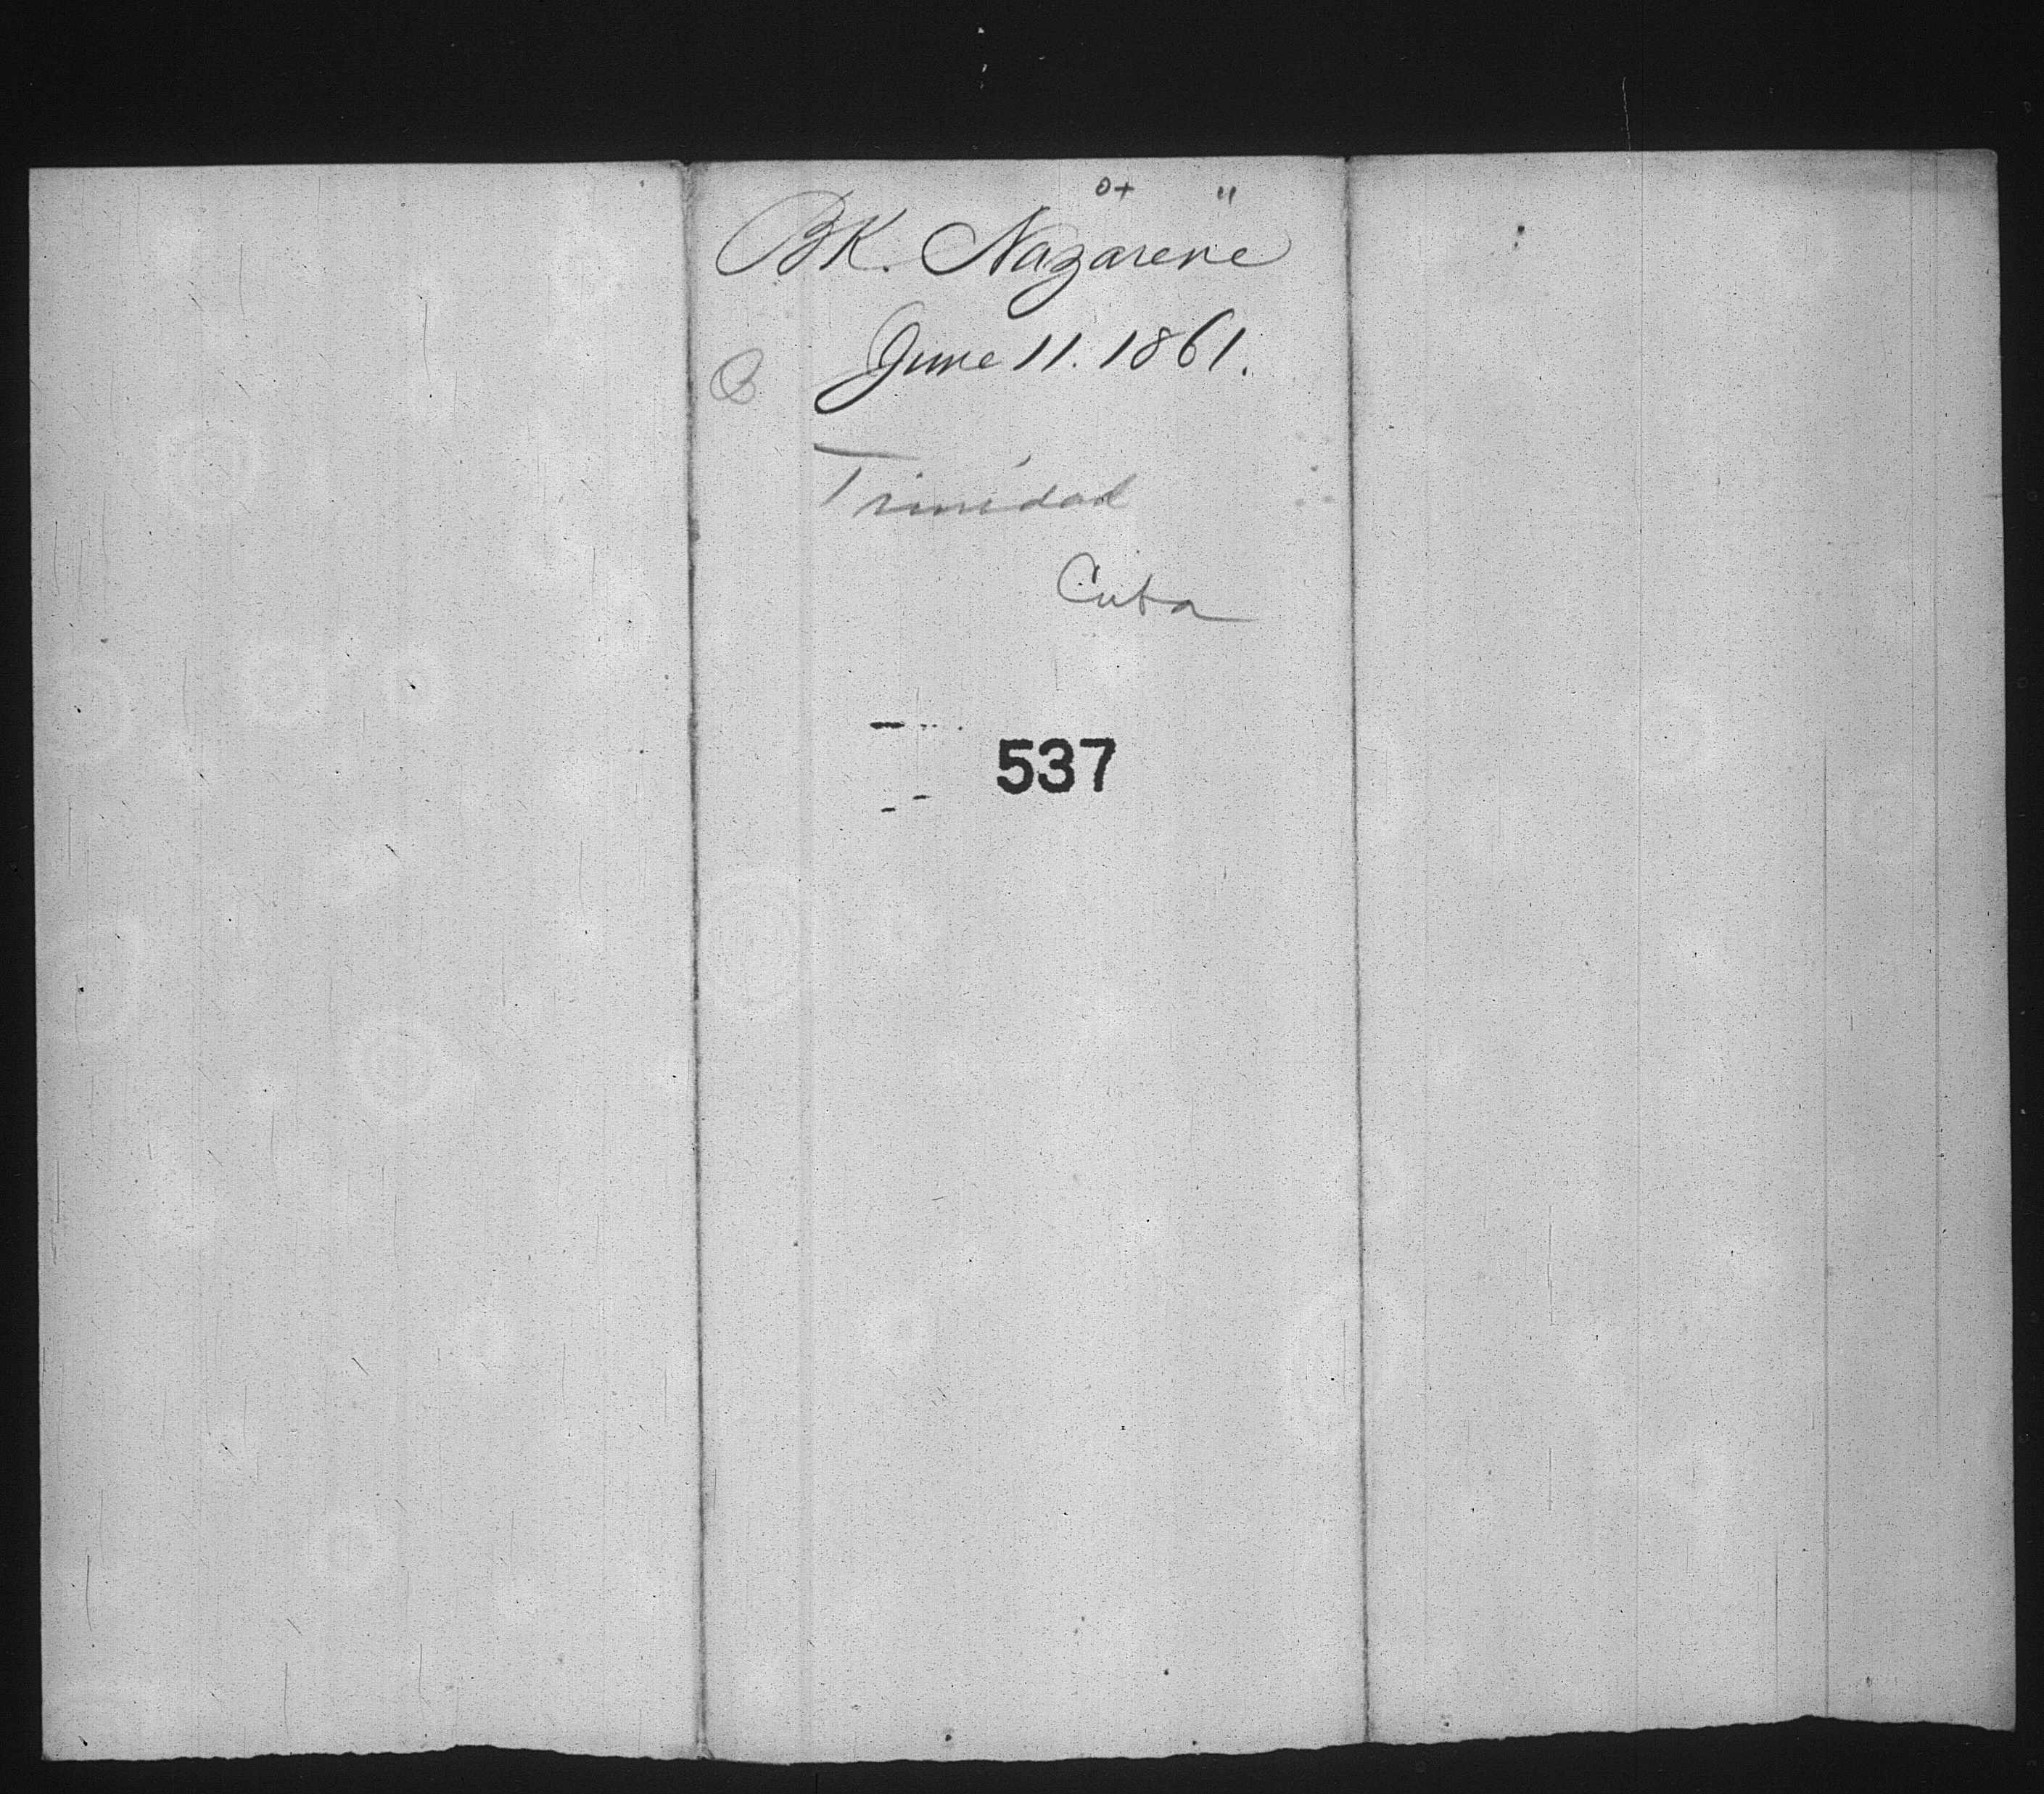 o+ "
Bk. Nazarene
June 11. 1861.
Trinidad
Cuba
537